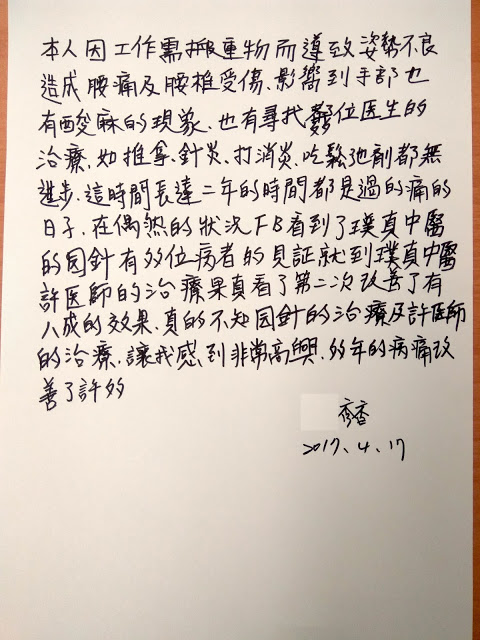 本人因工作需搬重物而導致姿勢不良
造成腰痛及腰椎受傷、影嚮到手部也
有酸麻的現象、也有尋找數位医生的
治療、如推拿、針灸、打消炎、吃鬆弛劑都無
進步、這時間長達二年的時間都是過的痛的
日子、在偶然的狀況FB看到了璞真中醫
的回針有多位病者的見証就到璞真中醫
許医師的治療果真看了第二次改善了有
八成的效果、真的不知回針的治療及許医師
的治療、讓我感到非常高興、多年的病痛改
善了許多
秀香
2017、4、17